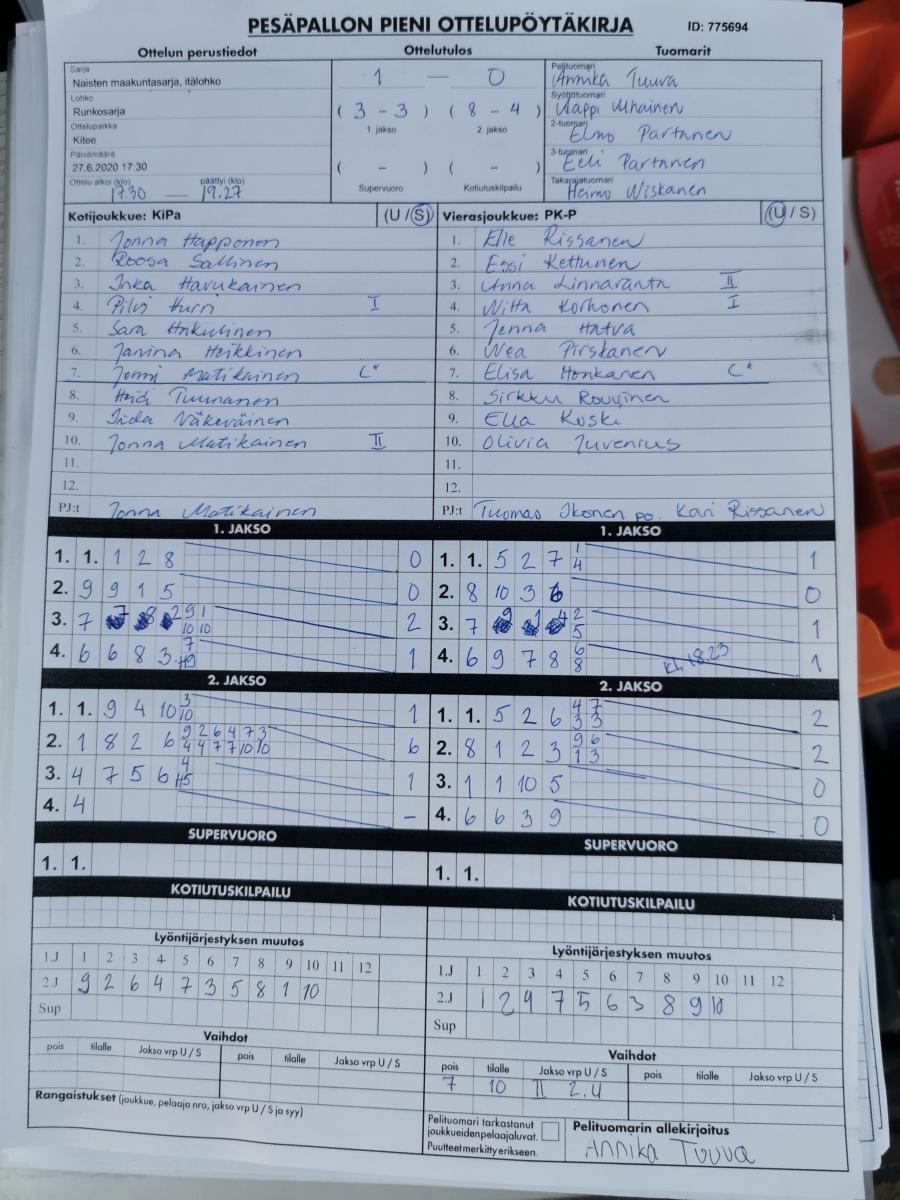 PESÄPALLON PIENI OTTELUPÖYTÄKIRJA ID: 775694
Ottelun perustiedot Ottelutulos Tuomarit
Sarja
Naisten maakuntasarja, itälohko
Lohko
Runkosarja
Ottelupaikka
Kitee
Päivämäärä
27.6.2020 17:30
Ottelu alkoi (klo) päättyi (klo)
17.30 — 19.27
1 — 0
( 3 - 3 ) ( 8 - 4 )
1. jakso 2. jakso
( - ) ( - )
Supervuoro Kotiutuskilpailu
Pelituomari
Annika Tuuva
Syöttötuomari
2-tuomari
Elmo Partanen
3-tuomari
Eeli Partanen
Takarajatuomari
Heimo Wiskanen
Kotijoukkue: KiPa (U / S)
1. Jonna Happonen
2. Roosa Sallinen
3. Inka Havukainen
4. Pilvi Hurri I
5. Sara Hakulinen
6. Janina Heikkinen
7. Jenni Matikainen C"
8. Heidi Tuunanen
9. Iida Näkeväinen
10. Jonna Matikainen II
11.
12.
PJ:t Jonna Matikainen
Vierasjoukkue: PK-P (U / S)
1. Elle Rissanen
2. Essi Kettunen
3. Anna Linnaranta II
4. Niita Korhonen I
5. Jenna Hatva
6. Nea Pirskanen
7. Elisa Honkanen C"
8. Sirkku Rouvinen
9. Ella Koski
10. Olivia Juvenius
11.
12.
PJ:t Tuomas Ikonen po. Kari Rissanen
1. JAKSO
1. 1. 1 2 8 0
2. 9 9 1 5 0
3. 7 2 9 1 10 10 2
4. 6 6 8 3 7 H9 1
2. JAKSO
1. 1. 9 4 10 3 10 1
2. 1 8 2 6 9 2 6 4 7 3 4 4 7 7 10 10 6
3. 4 7 5 6 4 H5 1
4. 4 -
SUPERVUORO
1. 1.
KOTIUTUSKILPAILU
Lyöntijärjestyksen muutos
1.J 1 2 3 4 5 6 7 8 9 10 11 12
2.J 9 2 6 4 7 3 5 8 1 10
Sup
Vaihdot
pois tilalle Jakso vrp U / S pois tilalle Jakso vrp U / S
Rangaistukset (joukkue, pelaaja nro, jakso vrp U / S ja syy)
1. JAKSO
1. 1. 5 2 7 1 4 1
2. 8 10 3 6 0
3. 7 2 5 1
4. 6 9 7 8 6 8 kl. 18.23 1
2. JAKSO
1. 1. 5 2 6 4 7 3 3 2
2. 8 1 2 3 9 6 1 3 2
3. 1 1 10 5 0
4. 6 6 3 9 0
SUPERVUORO
1. 1.
KOTIUTUSKILPAILU
Lyöntijärjestyksen muutos
1.J 1 2 3 4 5 6 7 8 9 10 11 12
2.J 1 2 4 7 5 6 3 8 9 10
Sup
Vaihdot
pois tilalle Jakso vrp U / S pois tilalle Jakso vrp U / S
7 10 II 2.4
Pelituomari tarkastanut
joukkueidenpelaajaluvat.
Puutteet merkitty erikseen.
Pelituomarin allekirjoitus
Annika Tuuva